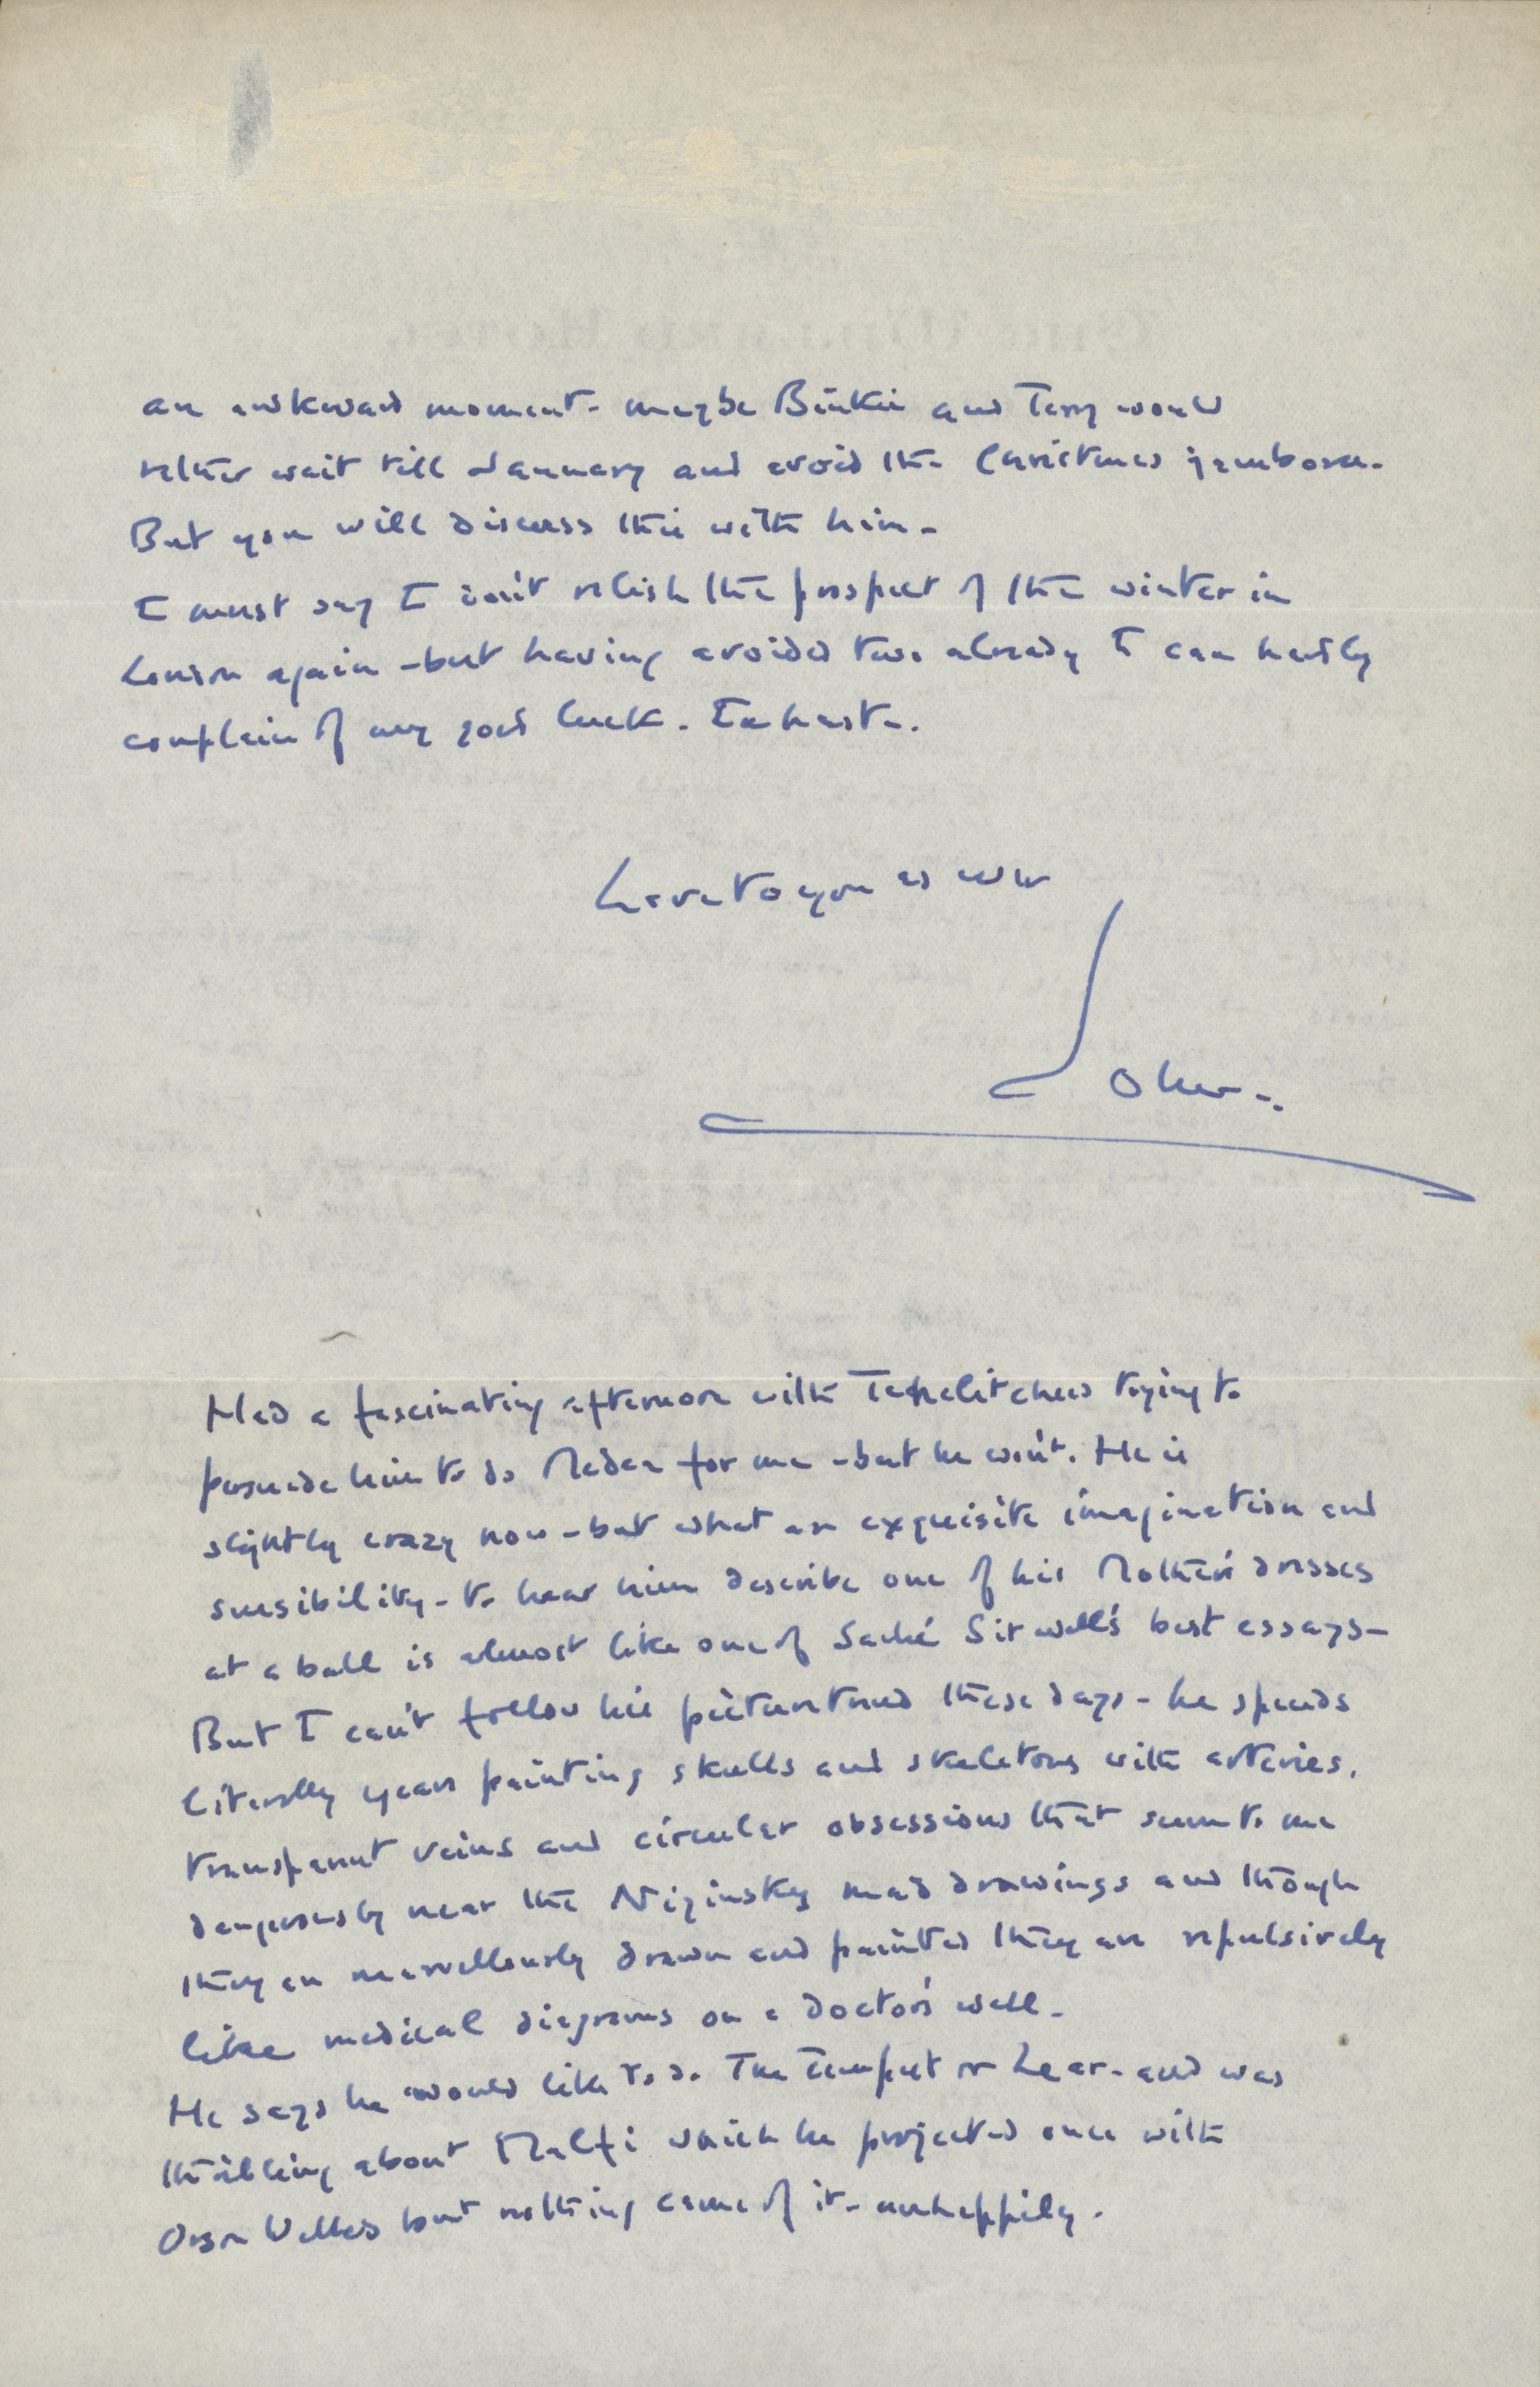 an awkward moment - maybe Binkie and Terry would
rather wait till January and avoid the Christmas jamboree -
But you will discuss this with him -
I must say I don't relish the prospect of the winter in
London again - but having avoided two already I can hardly
complain of my good luck. In haste -
Love to you as ever
John -
Had a fascinating afternoon with Tchelitchew trying to
persuade him to do Medea for me - but he won't. He is
slightly crazy now - but what an exquisite imagination and
sensibility - to hear him describe one of his Mother's dresses
at a ball is almost like one of Sachie Sitwell's best essays -
But I can't follow his picture trend these days - he spends
literally years painting skulls and skeletons with arteries,
transparent veins and circular obsessions that seem to me
dangerously near the Nijinsky mad drawings and though
they are marvellously drawn and painted they are repulsively
like medical diagrams on a doctor's wall -
He says he would like to do The Tempest or Lear - and was
thrilling about Malfi which he projected once with
Orson Welles but nothing came of it - unhappily.